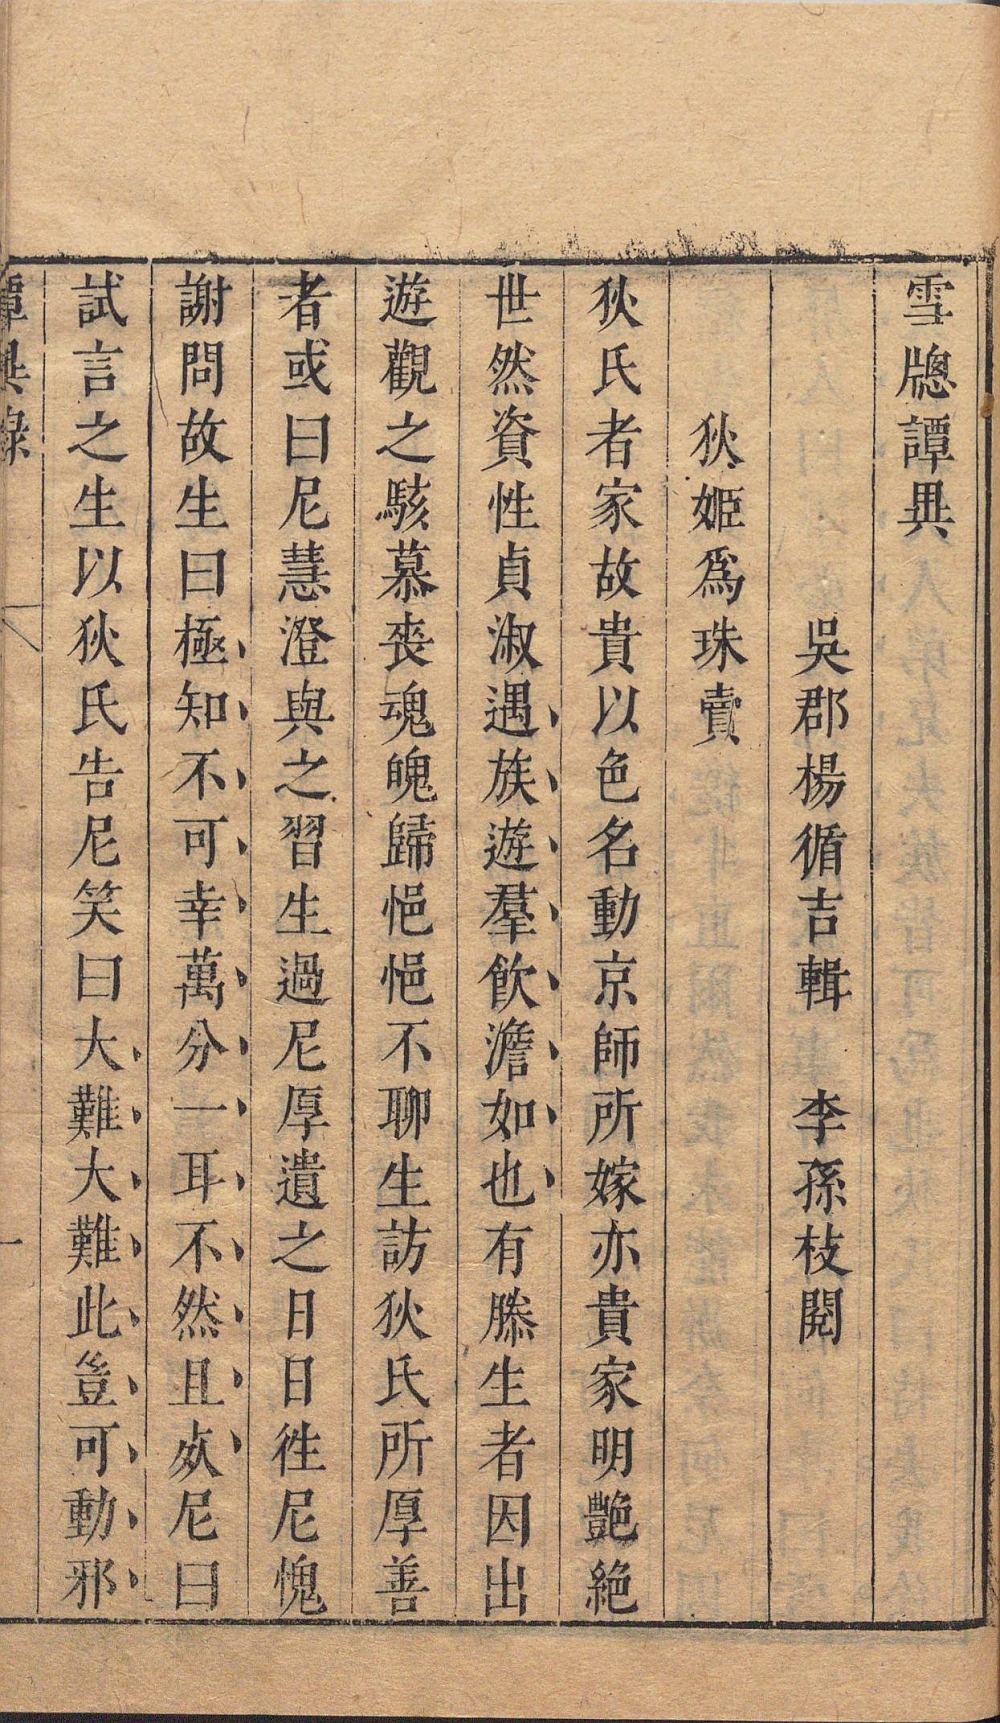 雪牕譚異
吳郡楊循吉輯　李孫枝閱
狄姬爲珠賣
狄氏者家故貴以色名動京師所嫁亦貴家明艷絕
世然資性貞淑遇族遊羣飲澹如也有滕生者因出
遊觀之駭慕喪魂魄歸悒悒不聊生訪狄氏所厚善
者或曰尼慧澄與之習生過尼厚遺之日日徃尼愧
謝問故生曰極知不可幸萬分一耳不然且死尼曰
試言之生以狄氏告尼笑曰大難大難此豈可動邪
譚異錄
一